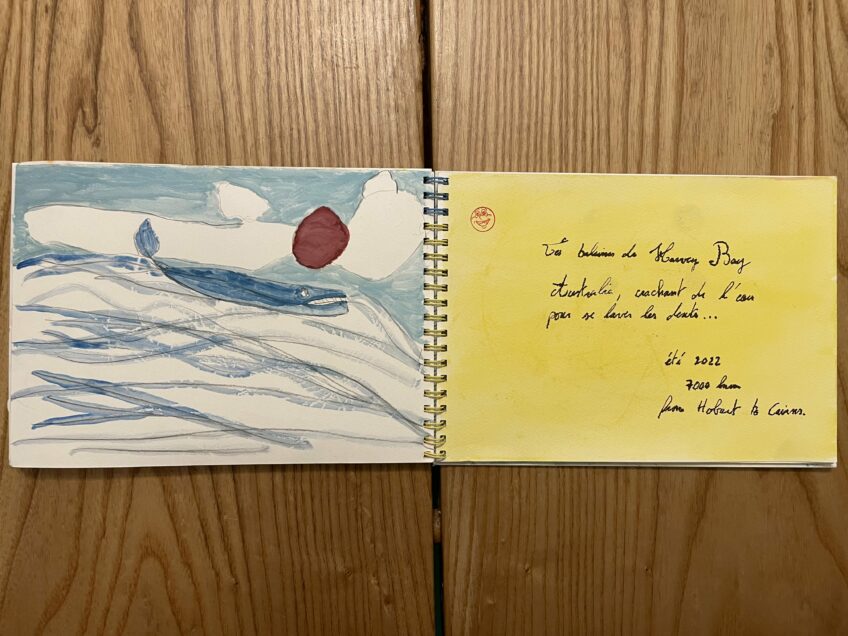 Les baleines de Harvey Bay
Australie, crachant de l'eau
pour se laver les dents...
été 2022
7000 kms
from Hobart to Cairns.